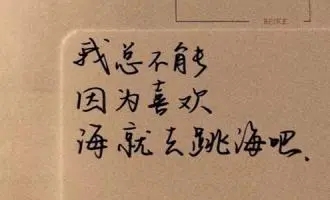 BEIKE
我总不能
因为喜欢
海就去跳海吧.